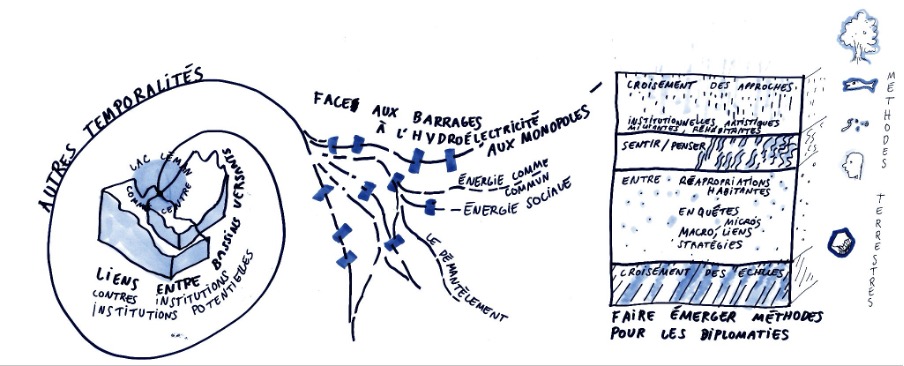 AUTRES TEMPORALITÉS
LAC LÉMAN
COMME CENTRE
BASSINS VERSANTS
LIENS ENTRE
CONTRES INSTITUTIONS
INSTITUTIONS POTENTIELLES
FACE AUX BARRAGES
À L'HYDROÉLECTRICITÉ
AUX MONOPOLES
ÉNERGIE COMME
COMMUN
ÉNERGIE SOCIALE
LE DÉMANTÈLEMENT
CROISEMENT DES APPROCHES
INSTITUTIONNELLES ARTISTIQUES
MILITANTES, RÉHABITANTES
SENTIR/PENSER
ENTRE RÉAPROPRIATIONS
HABITANTES
ENQUÊTES
MICROS
MACRO, LIENS
STRATÉGIES
CROISEMENT DES ÉCHELLES
FAIRE ÉMERGER MÉTHODES
POUR LES DIPLOMATIES
MÉTHODES
TERRESTRES